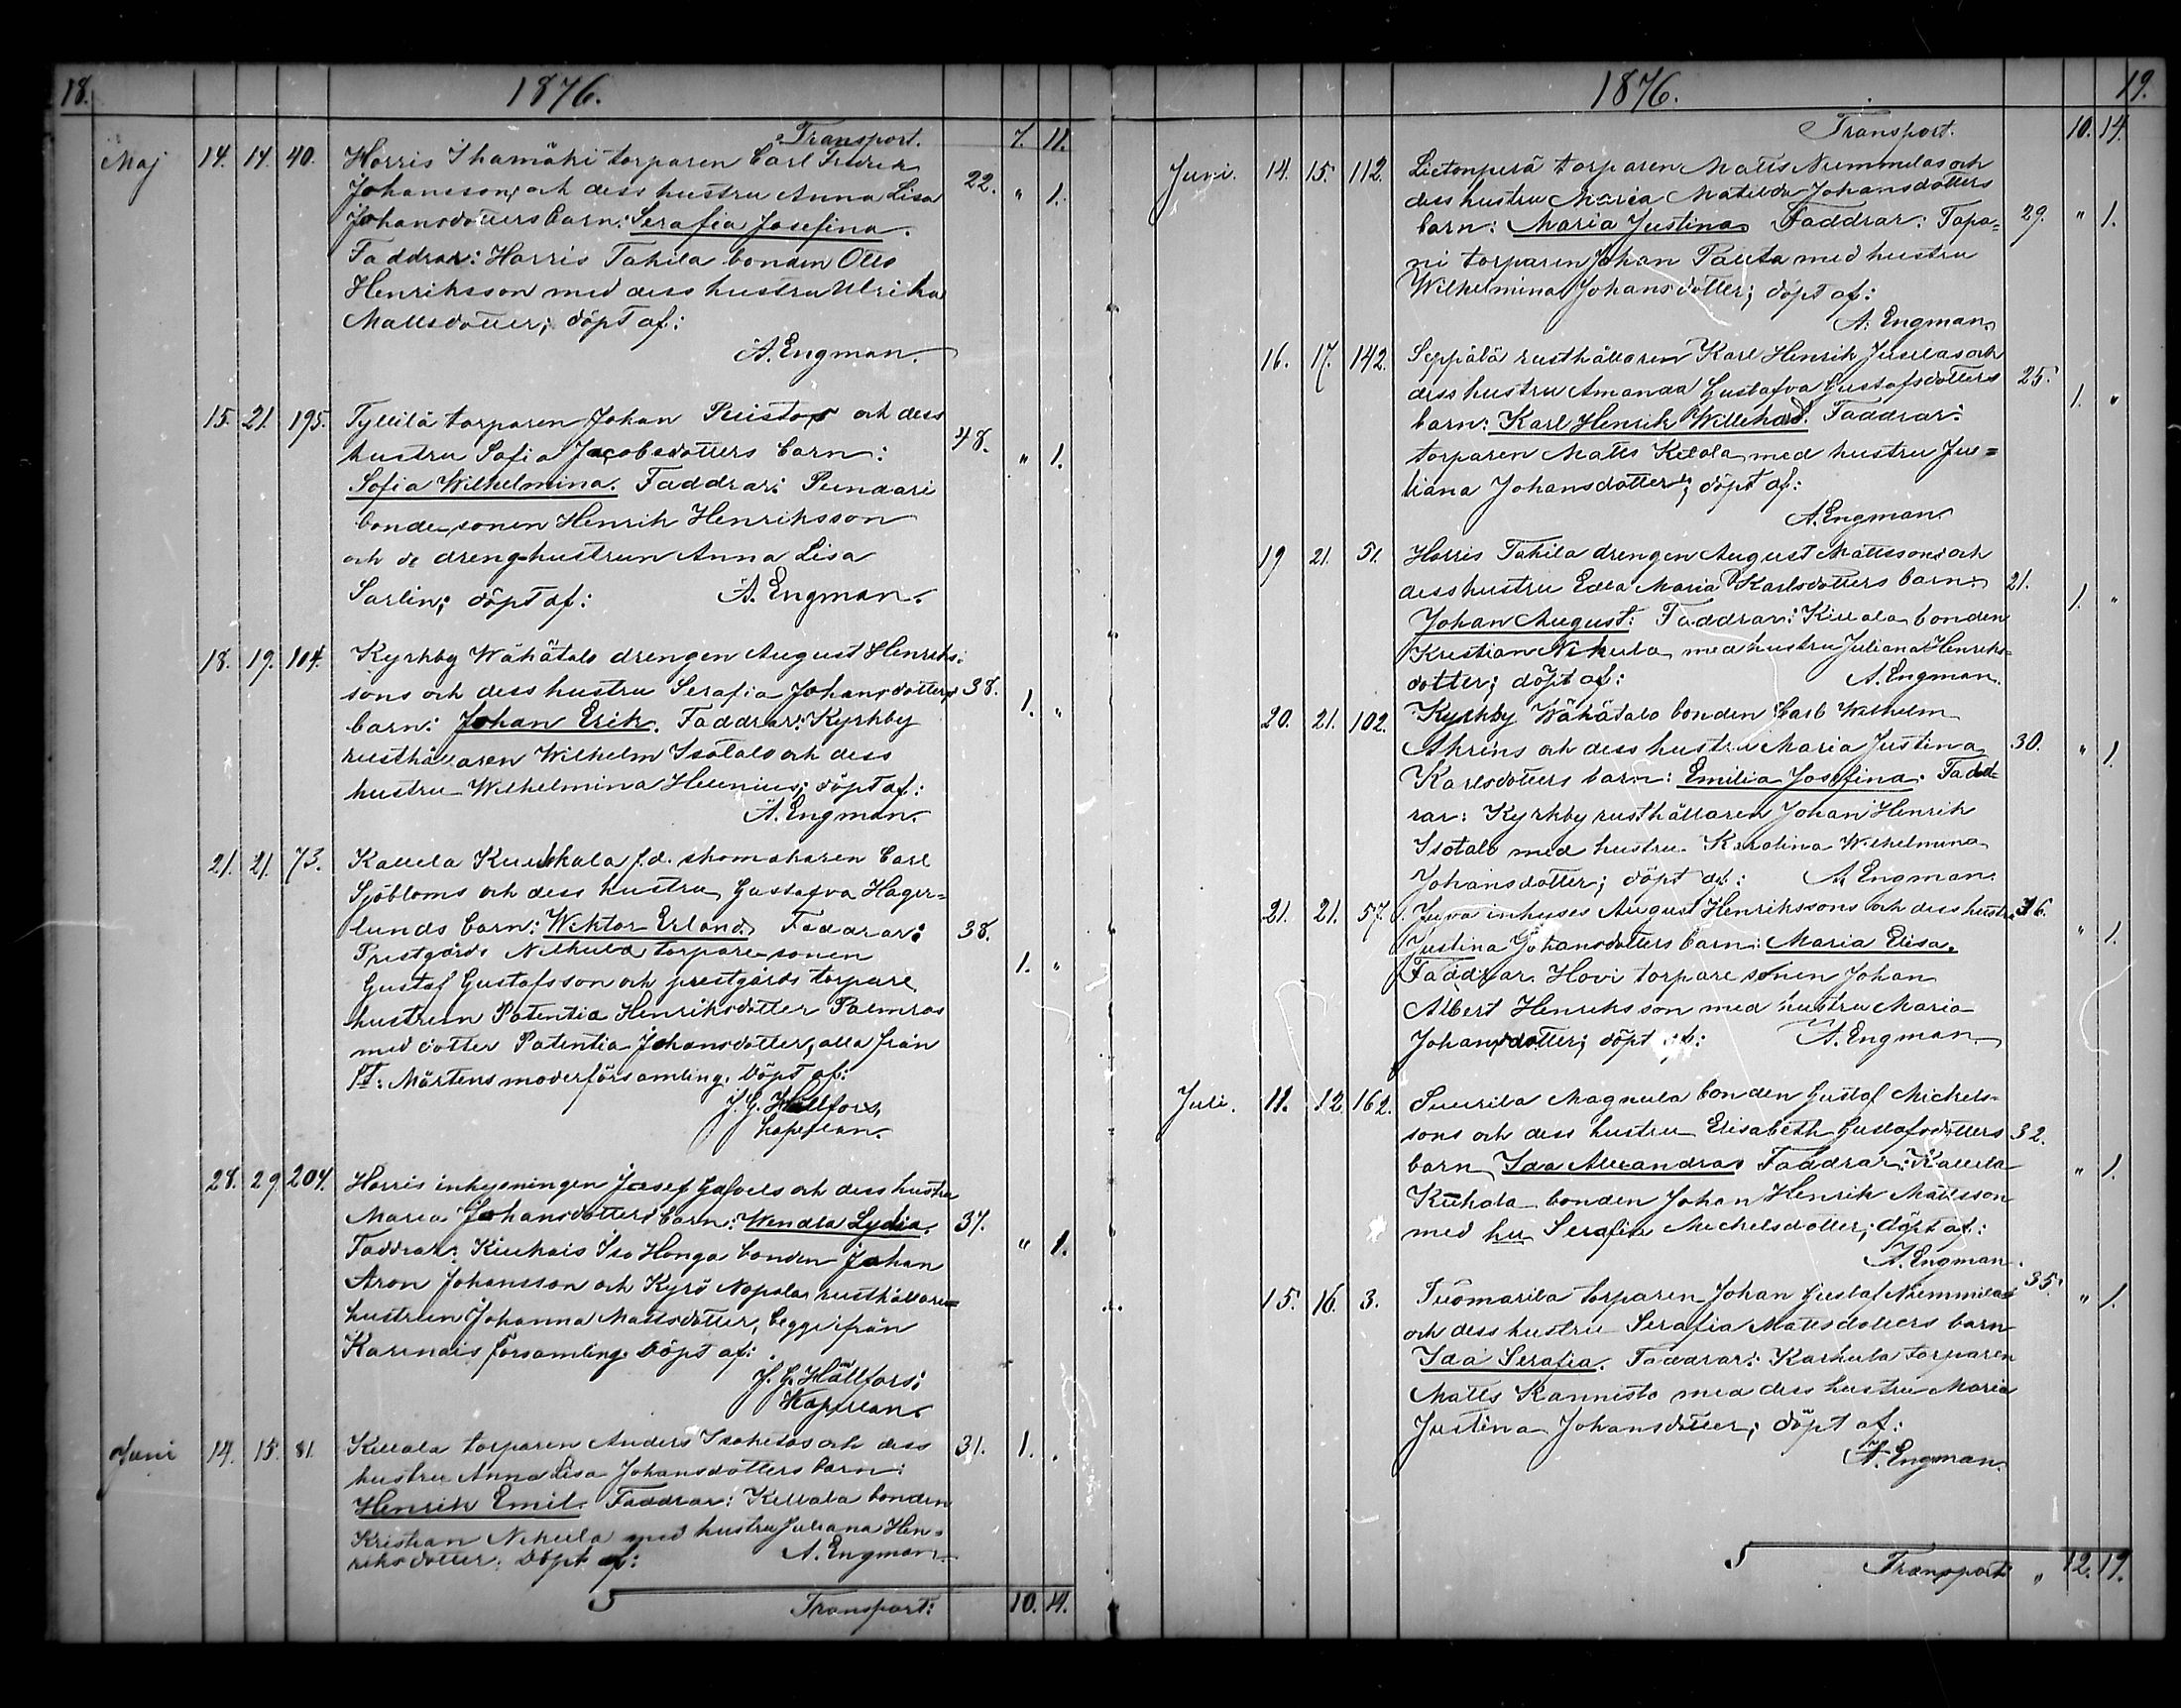 18.
1876.
Transport. 7. 11.
Maj 14. 14. 40. Horris Ihamäki torparen Carl Fredrik
Johansson, och dess hustru Anna Lisa 22. " 1.
Johansdotters barn: Serafia Josefina.
Faddrar: Horris Tahila bonden Otto
Henriksson med dess hustru Ulrika
Mattsdotter; döpt af:
A. Engman.
15. 21. 195. Tyllilä torparen Johan Puistos och dess
hustru Sofia Jacobsdotters barn: 48. " 1.
Sofia Wilhelmina. Faddrar: Pundari
bonde sonen Henrik Henriksson
och dräng-hustrun Anna Lisa
Sarlin; döpt af: A. Engman.
18. 19. 104. Kyrkby Wähätalo drengen August Henriks-
sons och dess hustru Serafia Johansdotters 38. 1. "
barn: Johan Erik. Faddrar: Kyrkby
rusthållaren Wilhelm Isotalo och dess
hustru Wilhelmina Helenius; döpt af:
A. Engman.
21. 21. 73. Kallela f.d. skomakaren Carl
Sjöbloms och dess hustru Gustafva Hager=
lunds barn: Wiktor Erland. Faddrar: 38.
Prestgårds Nikula torpare-sonen 1. "
Gustaf Gustafsson och prestgårds torpare
hustrun Patentia Henriksdotter Palmros
med dotter Patentia Johansdotter, alla från
St: Mårtens moderförsamling. Döpt af:
J. G. Hällfors,
kapellan.
28. 29. 204. Horris inhysningen Josef och dess hustru
Maria Johansdotters barn: Wendla Lydia. 37.
Faddrar: Kiukais Iso Honga bonden Johan " 1.
Aron Johansson och Kyrö Nopola rusthållare=
hustrun Johanna Mattsdotter, begge från
Karinais församling. Döpt af:
J. G. Hällfors:
Kapellan.
Juni 14. 15. 81. Killala torparen Anders Isoketos och dess 31. 1. "
hustru Anna Lisa Johansdotters barn:
Henrik Emil. Faddrar: Killala bonden
Kristian Nikula med hustru Juliana Hen-
riksdotter. Döpt af: A. Engman.
Transport: 10. 14.
19.
1876.
Transport. 10. 14.
Juni. 14. 15. 112. Lietonperä torparen Matts Nummilas och
dess hustru Maria Matilda Johansdotters
barn: Maria Justina. Faddrar: Tapa= 29. " 1.
ni torparen Johan Pauta med hustru
Wilhelmina Johansdotter; döpt af:
A. Engman.
16. 17. 142. Seppälä rusthållaren Karl Henrik Jusilas och
dess hustru Amanda Gustafva Gustafsdotters 25.
barn: Karl Henrik Willehard. Faddrar: 1. "
torparen Matts Ketola med hustru Ju=
liana Johansdotter; döpt af:
A. Engman.
19 21. 51. Horris Tahila drengen August Mattssons och
dess hustru Edla Maria Karlsdotters barn: 21.
Johan August. Faddrar: Killala bonden 1. "
Kristian Nikula med hustru Juliana Henriks=
dotter; döpt af: A. Engman.
20. 21. 102. Kyrkby Wähätalo bonden Carl Wilhelm
Ahrens och dess hustru Maria Justina 30. " 1.
Karlsdotters barn: Emilia Josefina. Fadd=
rar: Kyrkby rusthållaren Johan Henrik
Isotalo med hustru Karolina Wilhelmina
Johansdotter; döpt af: A. Engman.
21. 21. 57. Juva inhyses August Henrikssons och dess hustru 36.
Justina Johansdotters barn: Maria Elisa. " 1.
Faddrar. Hovi torpare sonen Johan
Albert Henriksson med hustru Maria
Johansdotter; döpt af: A. Engman.
Juli. 11. 12. 162. Suurila Magnula bonden Gustaf Michels-
sons och dess hustru Elisabeth Gustafsdotters 32.
barn Ida Alexandra. Faddrar: Kallela " 1.
bonden Johan Henrik Mattsson
med hu Serafia Michelsdotter; döpt af:
A. Engman.
15. 16. 3. Tuomarila torparen Johan Gustaf Nummilas 35. " 1.
och dess hustru Serafia Mattsdotters barn
Ida Serafia. Faddrar: Karhula torparen
Matts Kannisto med dess hustru Maria
Justina Johansdotter; döpt af:
A. Engman.
Transport " 12. 19.